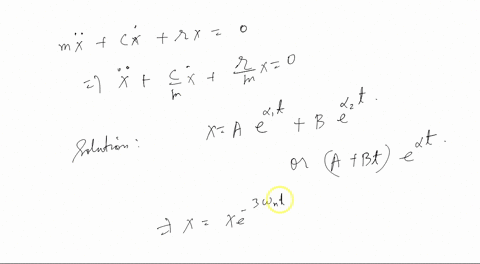 mẍ + cẋ + rx = 0
=) ẍ + c/m ẋ + r/m x = 0
Solution: x = A e^{α₁t} + B e^{α₂t}.
or (A + Bt) e^{αt}.
=) x = xe^{-3ωₙt}